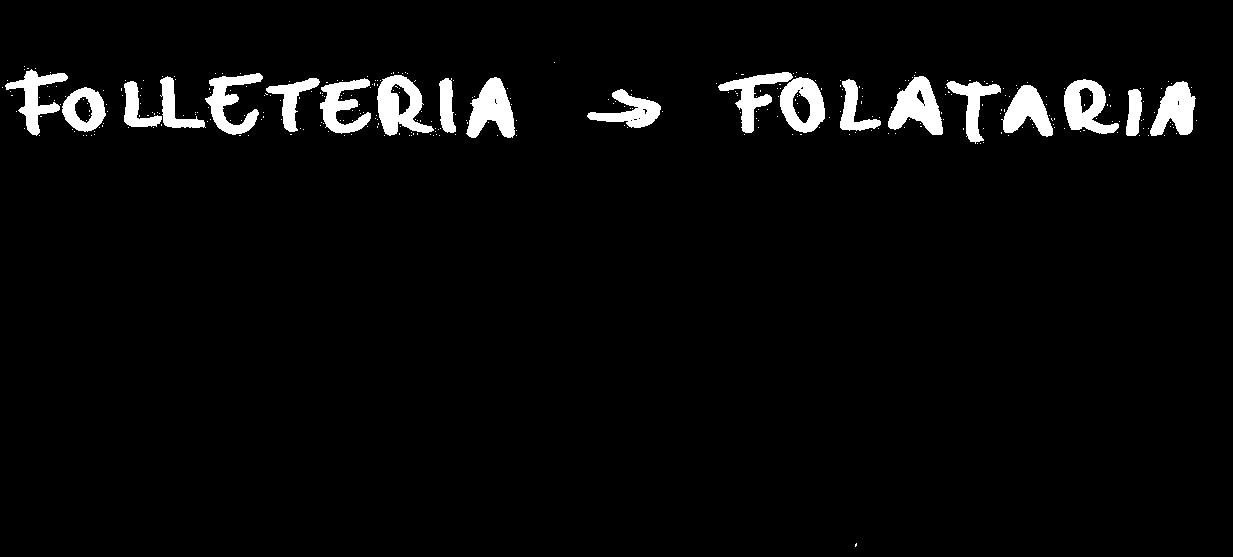 FOLLETERIA → FOLATARIA